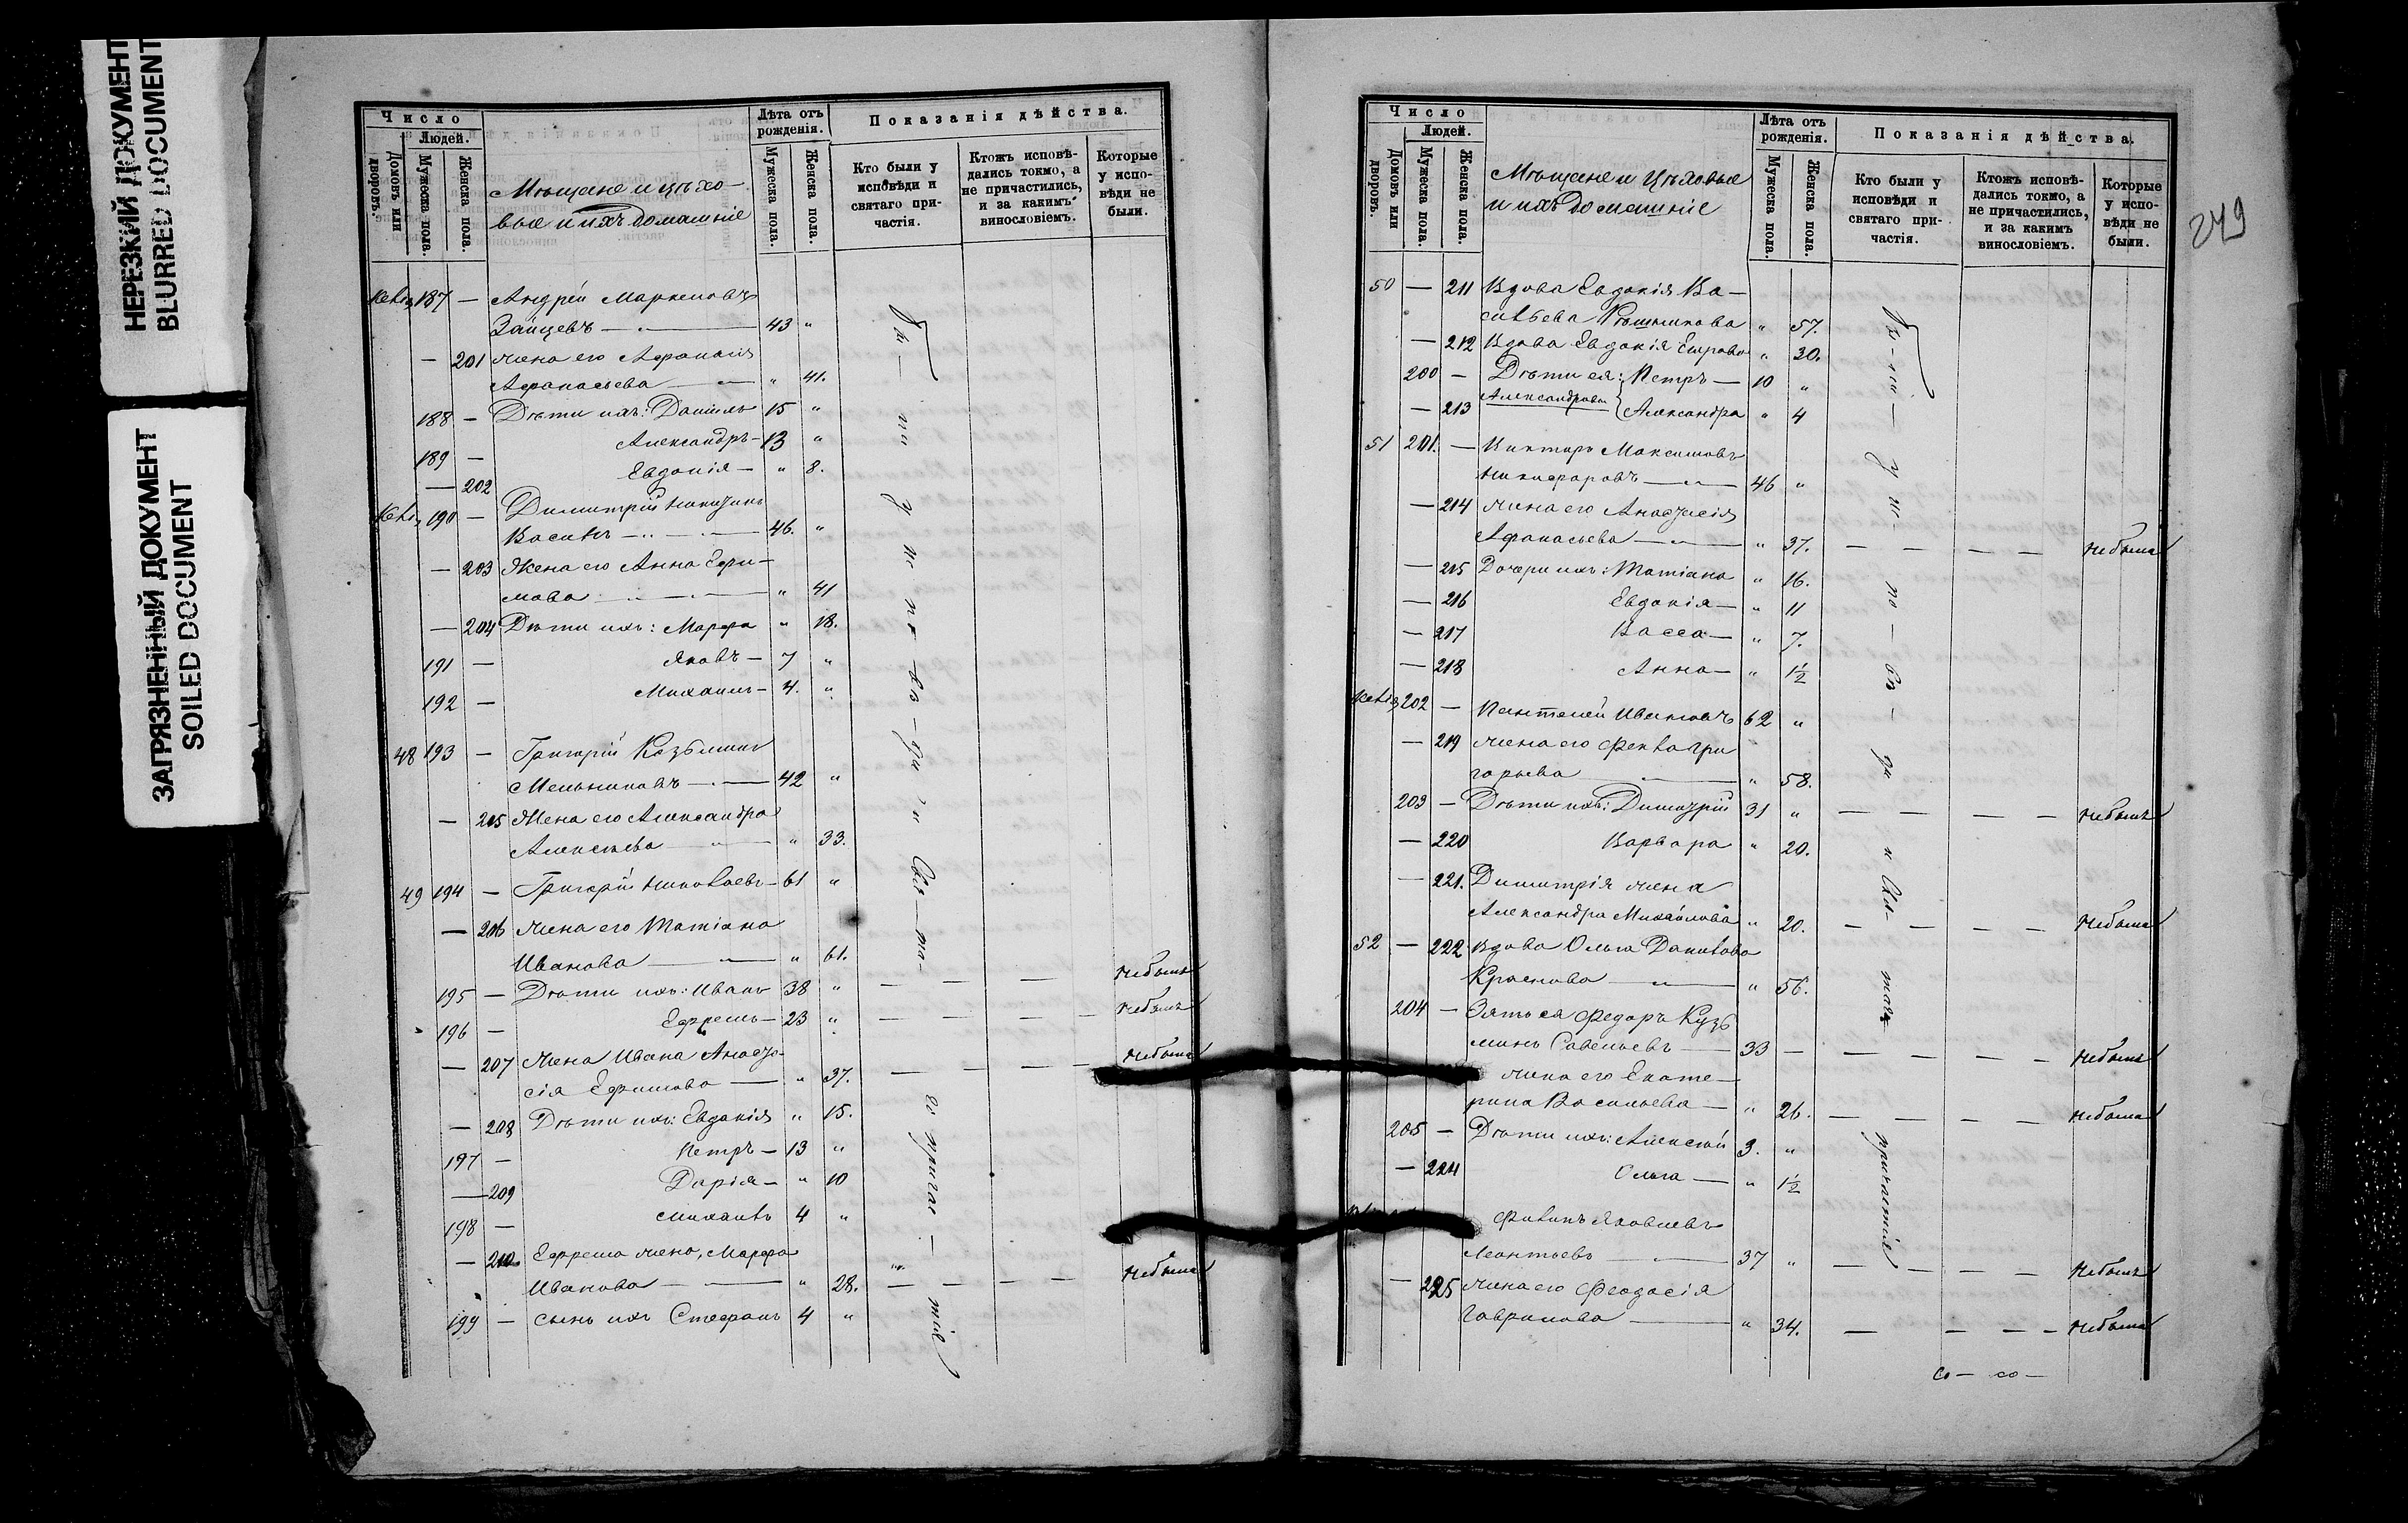 НЕРЕЗКИЙ ДОКУМЕНТ
BLURRED DOCUMENT
ЗАГРЯЗНЕННЫЙ ДОКУМЕНТ
SOILED DOCUMENT
Число
Людей.
Домовъ или дворовъ.
Мужеска пола.
Женска пола.
Мѣщане и цѣхо-
вые и ихъ домашніе
Лѣта отъ рожденія.
Мужеска пола.
Женска пола.
Показанія дѣйства.
Кто были у исповѣди и святаго причастія.
Ктожъ исповѣдались токмо, а не причастились, и за какимъ винословіемъ.
Которые у исповѣди не были.
187 — Андрей
Зайцевъ — 43 "
— 201 жена его
Афанасьева — " 41.
188 — Дѣти ихъ: Даніилъ 15 "
189 — Александръ — 13 "
— 202 Евдокія — " 8.
190 — Димитрій
46. "
— 203 Жена его Анна Ефи-
мова — " 41
— 204 Дѣти ихъ: Марфа " 18.
191 — Яковъ — 7 "
192 — Михаилъ — 4. "
48 193 — Григорій Козьминъ
Мельниковъ — 42 "
— 205 Жена его Александра
Алексѣева — " 33.
49 194 — Григорій Николаевъ — 61 "
— 206 жена его Татіана
Иванова — " 61.
195 — Дѣти ихъ: Иванъ 38 " — — — небылъ
196 — Ефремъ — 23 " — — — — небылъ
— 207 Жена Ивана Анаста-
сія Ефимова — " 37. — — — — небыла
— 208 Дѣти ихъ: Евдокія " 15.
197 — Петръ — 13 "
— 209 Дарія — " 10
198 — Михаилъ 4 "
— 210 Ефрема жена, Марфа
Иванова — " 28. — — — — небыла
199 — сынъ ихъ Стефанъ 4 "
Число
Людей.
Домовъ или дворовъ.
Мужеска пола.
Женска пола.
Мѣщане и Цѣховые
и ихъ домашніе
Лѣта отъ рожденія.
Мужеска пола.
Женска пола.
Показанія дѣйства.
Кто были у исповѣди и святаго причастія.
Ктожъ исповѣдались токмо, а не причастились, и за какимъ винословіемъ.
Которые у исповѣди не были.
249
50 — 211 Вдова Евдокія Ва-
сильева " 57.
— 212 Вдова Евдокія " 30.
200 — Дѣти ея: Петръ — 10 "
— 213 Александровы Александра " 4
51 201. — Викторъ Максимовъ
Никифоровъ — 46 "
— 214 жена его Анастасія
Афанасьева — " 37. — — — — небыла
— 215 Дочери ихъ: Татіана " 16.
— 216 Евдокія — " 11
— 217 Васса — " 7.
— 218 Анна — " 1½
202 — Пантелей Ивановъ 62 "
— 219 жена его Фекла Гри
горьева — " 58.
203 — Дѣти ихъ: Димитрій 31 " — — — — небылъ
— 220 Варвара " 20.
— 221. Димитрія жена
Александра Михайлова " 20. — — — — небыла
52 — 222 вдова Ольга Данилова
Краснова — " 56.
204 — Зять ея Федоръ Кузь
минъ Савельевъ — 33 — — — — — небылъ
жена его Екате-
рина Васильева — " 26. — — — — небыла
205 — Дѣти ихъ: Алексѣй 3. "
— 224 Ольга — " 1½
Филипъ Яковлевъ
Леонтьевъ — 37 " — — — — небылъ
— 225 жена его Феодосія
Гаврилова — " 34. — — — небыла